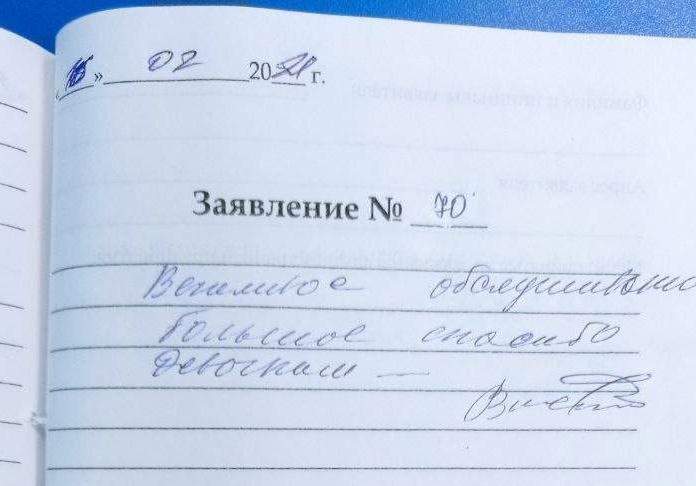 « » 02 2021 г.
Заявление № 70
Вежливое обслуживание
Большое спасибо
Девочкам —